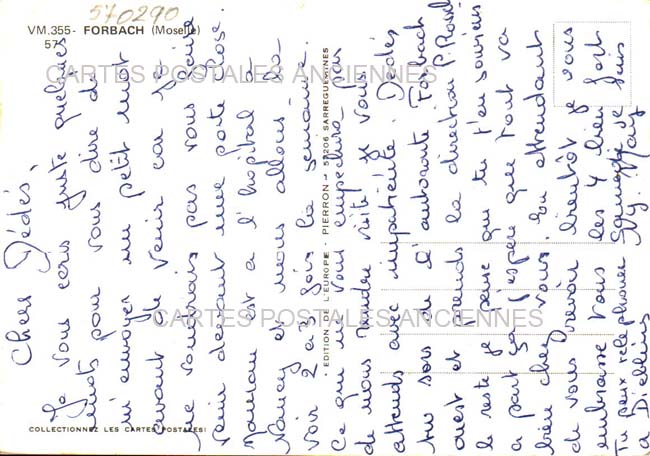 570290
VM.355- FORBACH (Moselle)
57
CARTES POSTALES ANCIENNES
CARTES POSTALES ANCIENNES
• EDITION DE L'EUROPE - PIERRON - 57206 SARREGUEMINES
COLLECTIONNEZ LES CARTES POSTALES!
Chers Dédés,
Je vous écris juste quelques
mots pour vous dire de
m'envoyer un petit mot
avant de venir car je
ne voudrais pas vous faire
venir devant une porte close.
Maman est à l'hôpital à
Nancy et nous allons la
voir 2 à 3 fois la semaine.
Ce qui ne vous empêchera pas
de nous rendre visite je vous
attends avec impatience. Dédés
tu sors de l'autoroute Forbach
ouest et prends la direction P. Rossel
le reste je pense que tu t'en souviens
à part ça j'espère que tout va
bien chez vous. En attendant
de vous revoir bientôt je vous
embrasse tous les 4 bien fort
Tu peux téléphoner
à Diebling